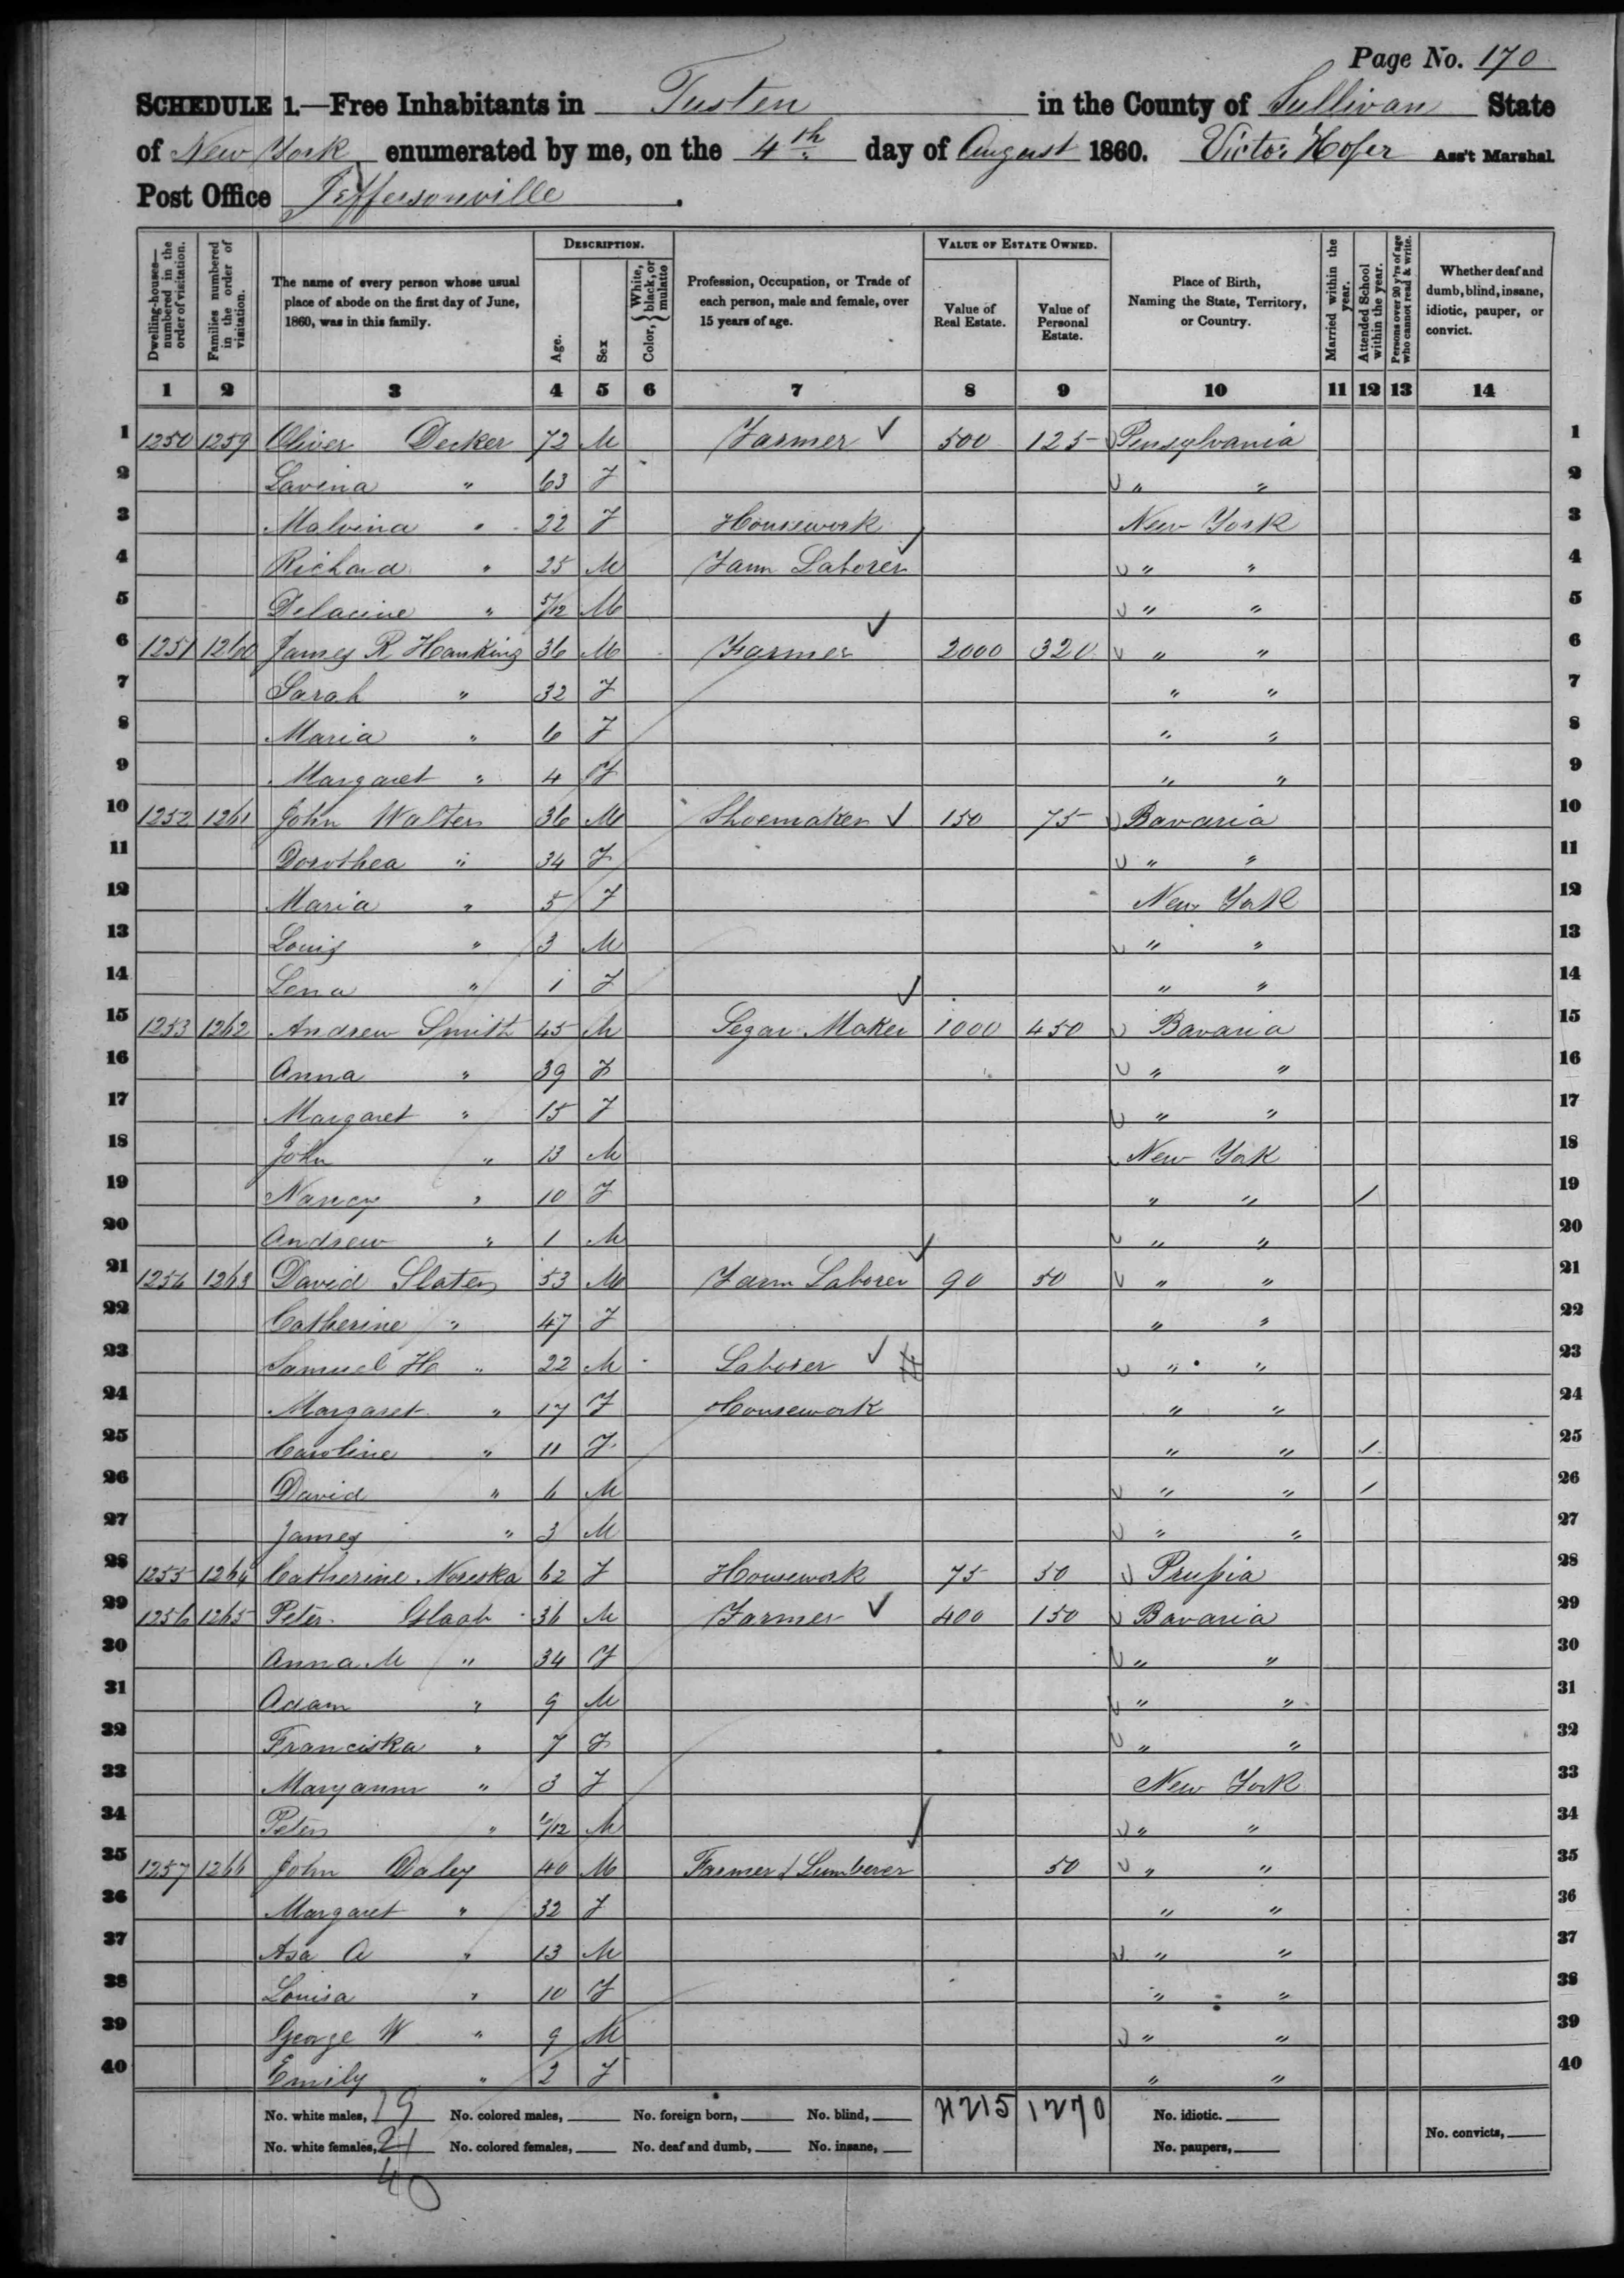 Page No. 170
SCHEDULE 1.—Free Inhabitants in Tusten in the County of Sullivan State
of New York enumerated by me, on the 4th day of August 1860. Victor Hofer Ass't Marshal.
Post Office Jeffersonville.
Dwelling-houses—numbered in the order of visitation. Families numbered in the order of visitation. The name of every person whose usual place of abode on the first day of June, 1860, was in this family. DESCRIPTION. Age. Sex Color, { White, black, or mulatto Profession, Occupation, or Trade of each person, male and female, over 15 years of age. VALUE OF ESTATE OWNED. Value of Real Estate. Value of Personal Estate. Place of Birth, Naming the State, Territory, or Country. Married within the year. Attended School within the year. Persons over 20 y'rs of age who cannot read & write. Whether deaf and dumb, blind, insane, idiotic, pauper, or convict.
1 2 3 4 5 6 7 8 9 10 11 12 13 14
1 1250 1259 Oliver Decker 72 M Farmer ✓ 500 125 Pensylvania 1
2 Lavina " 63 F " " 2
3 Malvina " 22 F Housework New York 3
4 Richard " 25 M Farm Laborer ✓ " " 4
5 " 5/12 M " " 5
6 1251 1260 James R Hankins 36 M Farmer ✓ 2000 320 " " 6
7 Sarah " 32 F " " 7
8 Maria " 6 F " " 8
9 Margaret " 4 F " " 9
10 1252 1261 John Walter 36 M Shoemaker ✓ 150 75 Bavaria 10
11 Dorothea " 34 F " " 11
12 Maria " 5 F New York 12
13 Louis " 3 M " " 13
14 Lena " 1 F " " 14
15 1253 1262 Andrew Smith 45 M Segar Maker ✓ 1000 450 Bavaria 15
16 Anna " 39 F " " 16
17 Margaret " 15 F " " 17
18 John " 13 M New York 18
19 Nancy " 10 F " " / 19
20 Andrew " 1 M " " 20
21 1254 1263 David Slater 53 M Farm Laborer ✓ 90 50 " " 21
22 Catherine " 47 F " " 22
23 Samuel H " 22 M Laborer ✓ " " 23
24 Margaret " 17 F Housework " " 24
25 Caroline " 11 F " " / 25
26 David " 6 M " " / 26
27 James " 3 M " " 27
28 1255 1264 Catherine Noreska 62 F Housework 75 50 Prussia 28
29 1256 1265 Peter Glaab 36 M Farmer ✓ 400 150 Bavaria 29
30 Anna M " 34 F " " 30
31 Adam " 9 M " " 31
32 Franciska " 7 F " " 32
33 Maryann " 3 F New York 33
34 Peter " /12 M " " 34
35 1257 1266 John Daley 40 M Farmer & Lumberer ✓ 50 " " 35
36 Margaret " 32 F " " 36
37 Asa A " 13 M " " 37
38 Louisa " 10 F " " 38
39 George W " 9 M " " 39
40 Emily " 2 F " " 40
No. white males, 19 No. colored males, No. foreign born, No. blind, 4215 1270 No. idiotic.
No. white females, 21 No. colored females, No. deaf and dumb, No. insane, No. paupers, No. convicts,
40